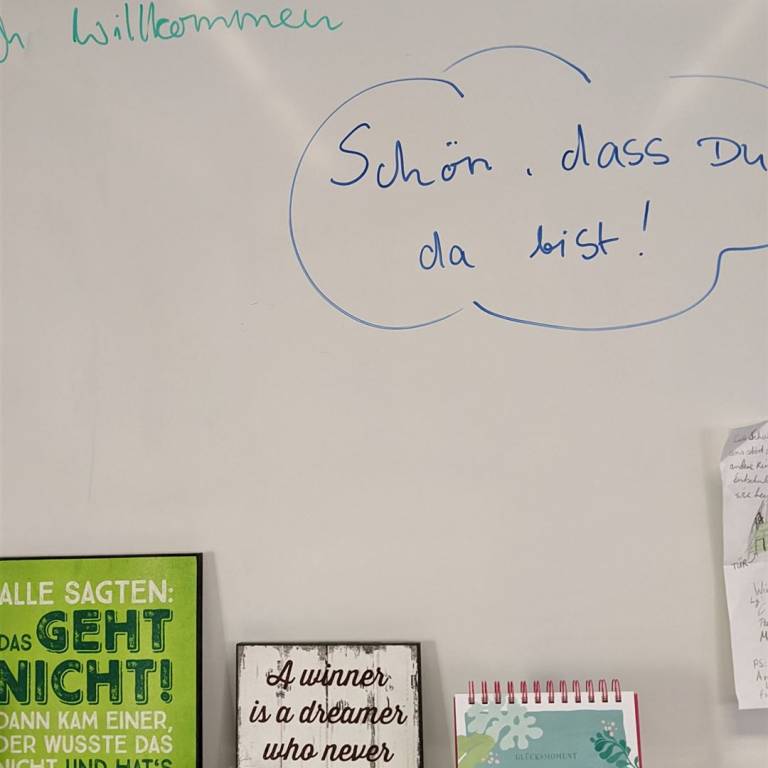 Willkommen
Schön, dass Du
da bist!
ALLE SAGTEN:
DAS GEHT
NICHT!
DANN KAM EINER,
DER WUSSTE DAS
NICHT UND HAT'S
A winner
is a dreamer
who never
GLÜCKSMOMENT
andere
TÜR
PS: